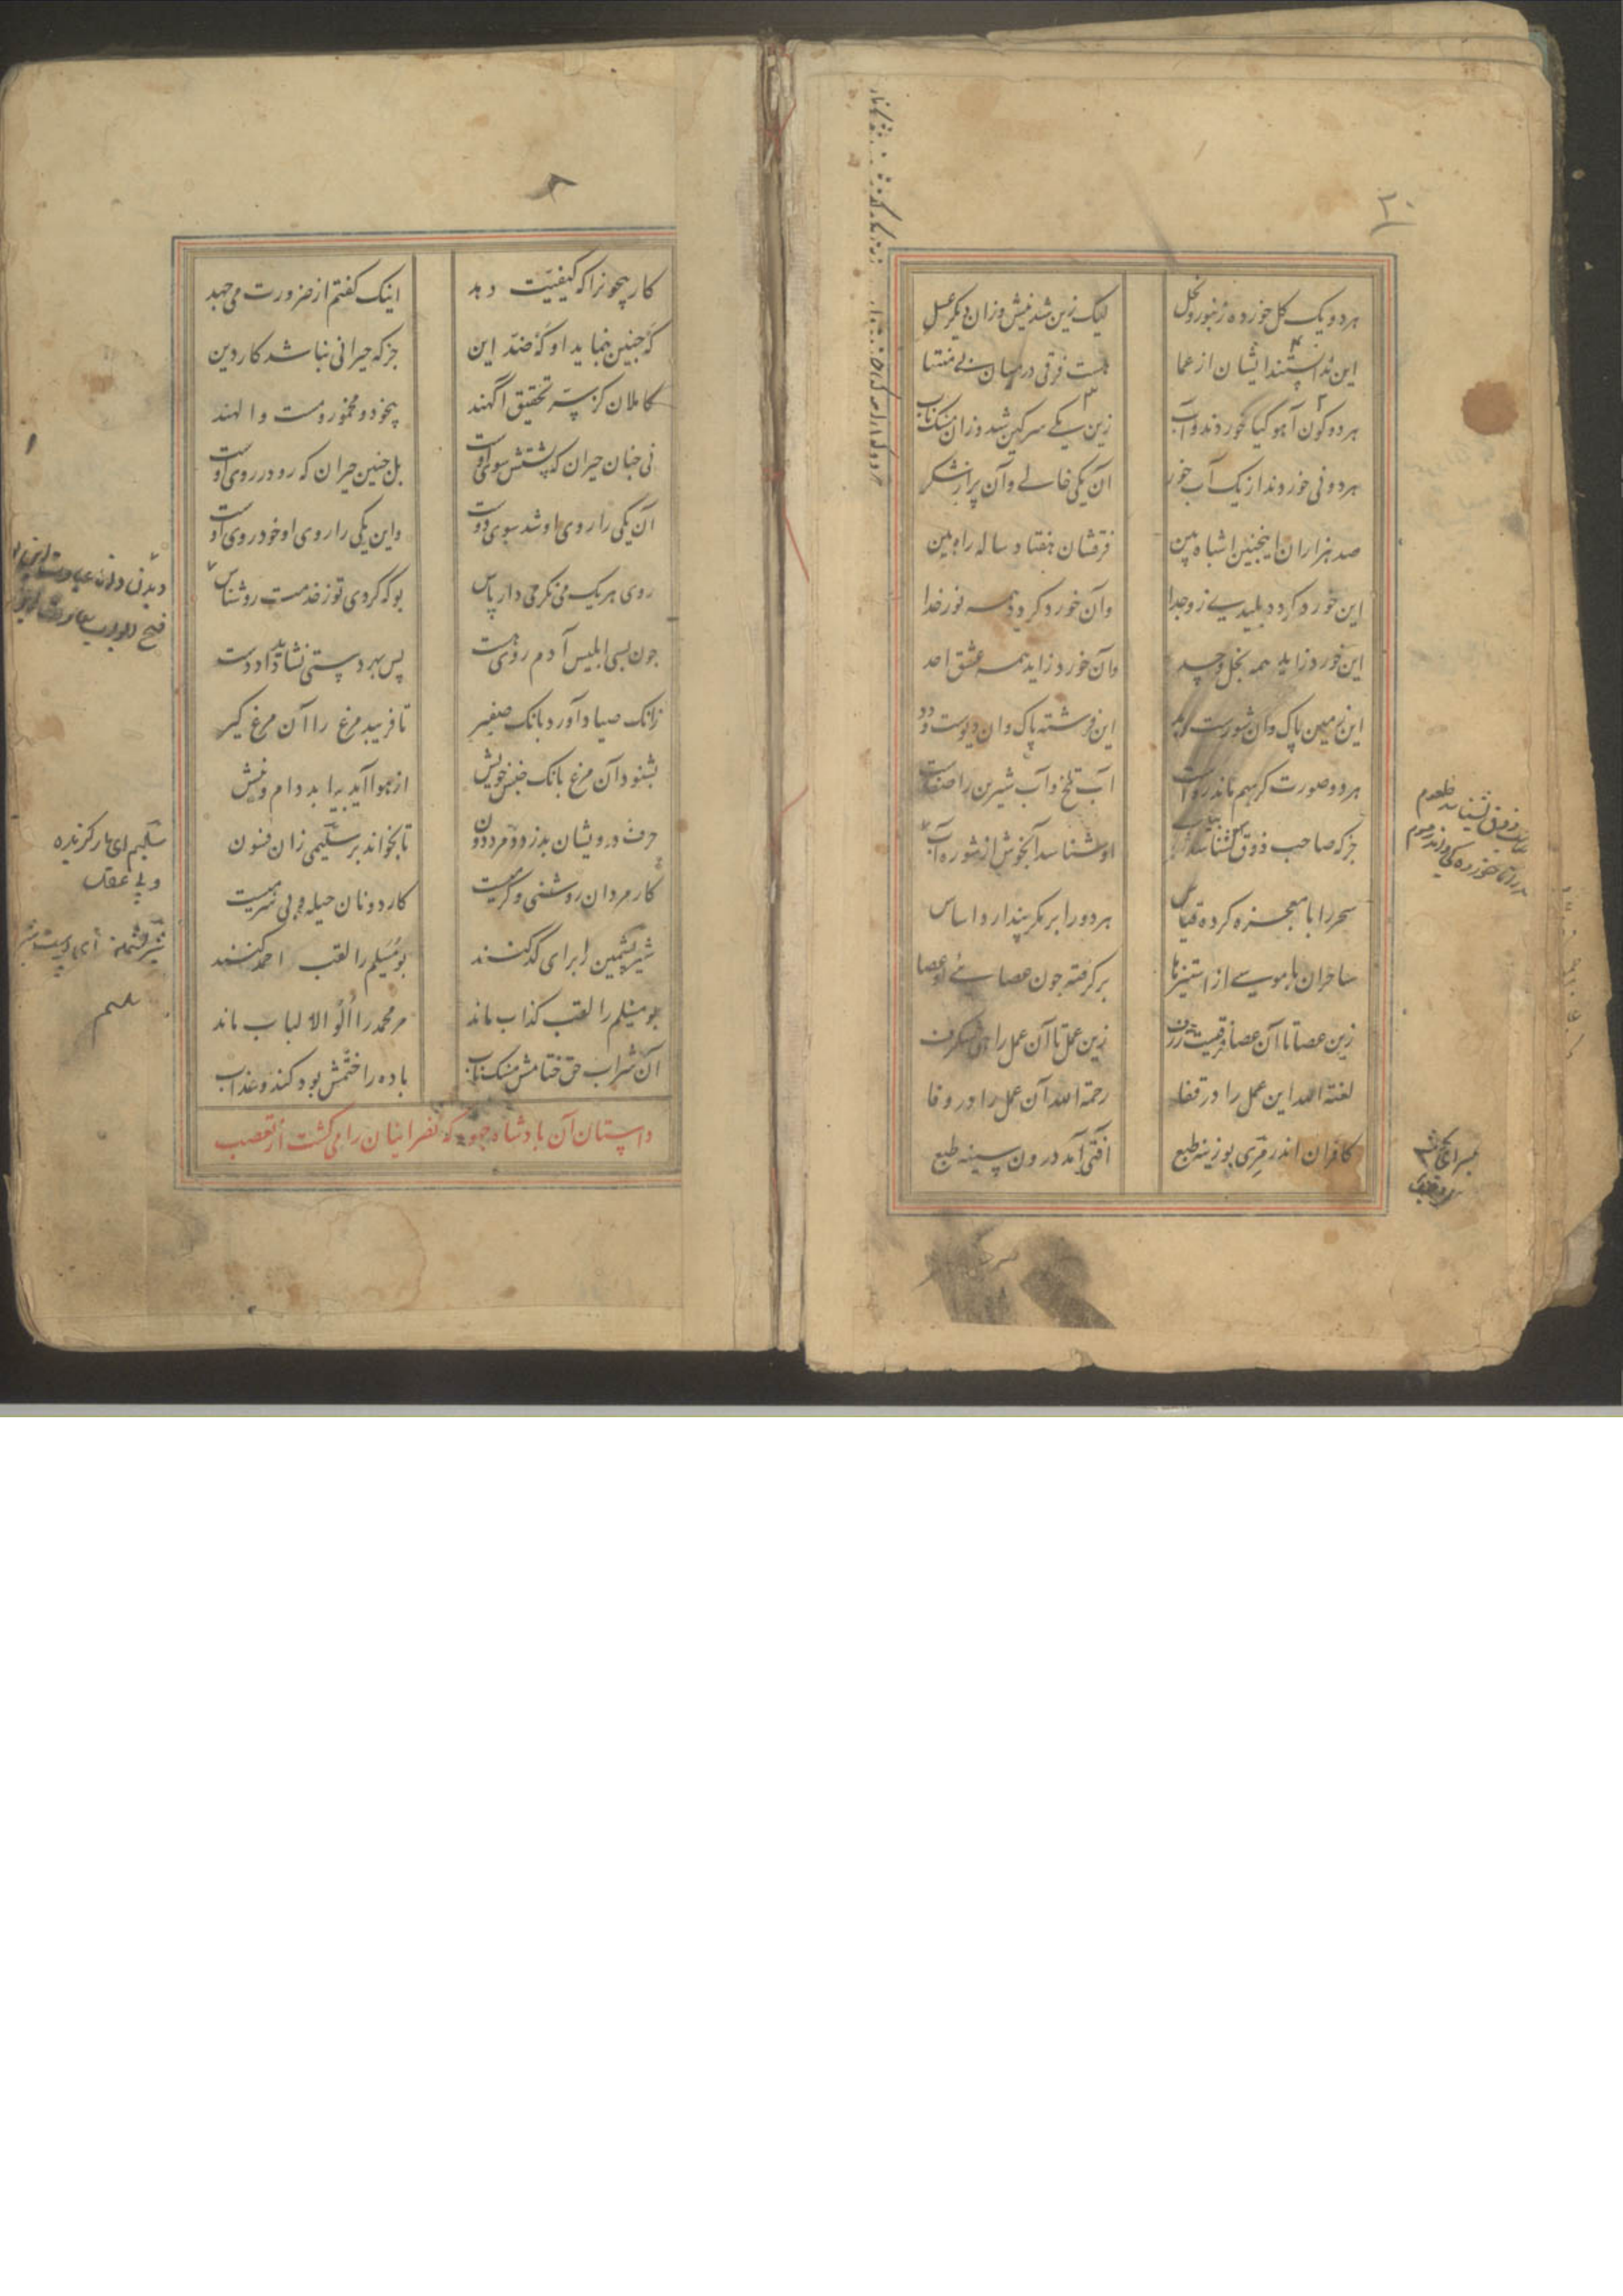 ۲۰
هر دو یک گل خورده زنبور و نحل لیک زین شد نیش و زان دیگر عسل
این ندانستند ایشان از عما هست فرقی در میان بی منتها
هر دو کون آهو گیا خوردند و آب زین یکی سرکین شد و زان مشک ناب
هر دو نی خوردند از یک آب خور آن یکی خالی و آن پر از شکر
صد هزاران اینچنین اشباه بین فرقشان هفتاد ساله راه بین
این خورد کردد پلیدی زو جدا وآن خورد کردد همه نور خدا
این خورد زاید همه بخل و حسد وآن خورد زاید همه عشق احد
این زمین پاک وان شورست و بد این فرشته پاک وان دیوست و دد
هر دو صورت کر بهم ماند رواست آب تلخ و آب شیرین را صفاست
جز که صاحب ذوق نشناسد بیاب او شناسد آب خوش از شوره آب
سحر را با معجزه کرده قیاس هر دو را بر مکر پندارد اساس
ساحران با موسی از استیزها برکرفته جون عصای او عصا
زین عصا تا آن عصا فرقیست ژرف زین عمل تا آن عمل راهی شکرف
لعنة الله این عمل را در قفا رحمة الله آن عمل را در وفا
کافران اندر مری بوزینه طبع آفتی آمد درون سینه طبع
کار بیچون را که کیفیت دهد اینک کفتم از ضرورت می جهد
که جنین بنماید او که ضد این جز که حیرانی نباشد کار دین
کاملان کز سر تحقیق آکهند بیخود و مخمور و مست و الهند
نی جنان حیران که پشتش سوی اوست بل جنین حیران که رو در روی اوست
آن یکی را روی او شد سوی دوست واین یکی را روی او خود روی اوست
روی هر یک می نکر می دار پاس بوکه کردی تو ز خدمت رو شناس
جون بسی ابلیس آدم روی هست پس بهر دستی نشاید داد دست
زانک صیاد آورد بانک صفیر تا فریبد مرغ را آن مرغ کیر
بشنود آن مرغ بانک جنس خویش از هوا آید بیابد دام و نیش
حرف درویشان بدزدد مرد دون تا بخواند بر سلیمی زان فسون
کار مردان روشنی و کرمیست کار دونان حیله و بی شرمیست
شیر پشمین از برای کد کنند بومسیلم را لقب احمد کنند
بومسیلم را لقب کذاب ماند مر محمد را الو الالباب ماند
آن شراب حق ختامش مشک ناب باده را ختمش بود کند و عذاب
داستان آن بادشاه جهود که نصرانیان را می کشت از تعصب
سلیم ای مار کزیده
و بی عقل